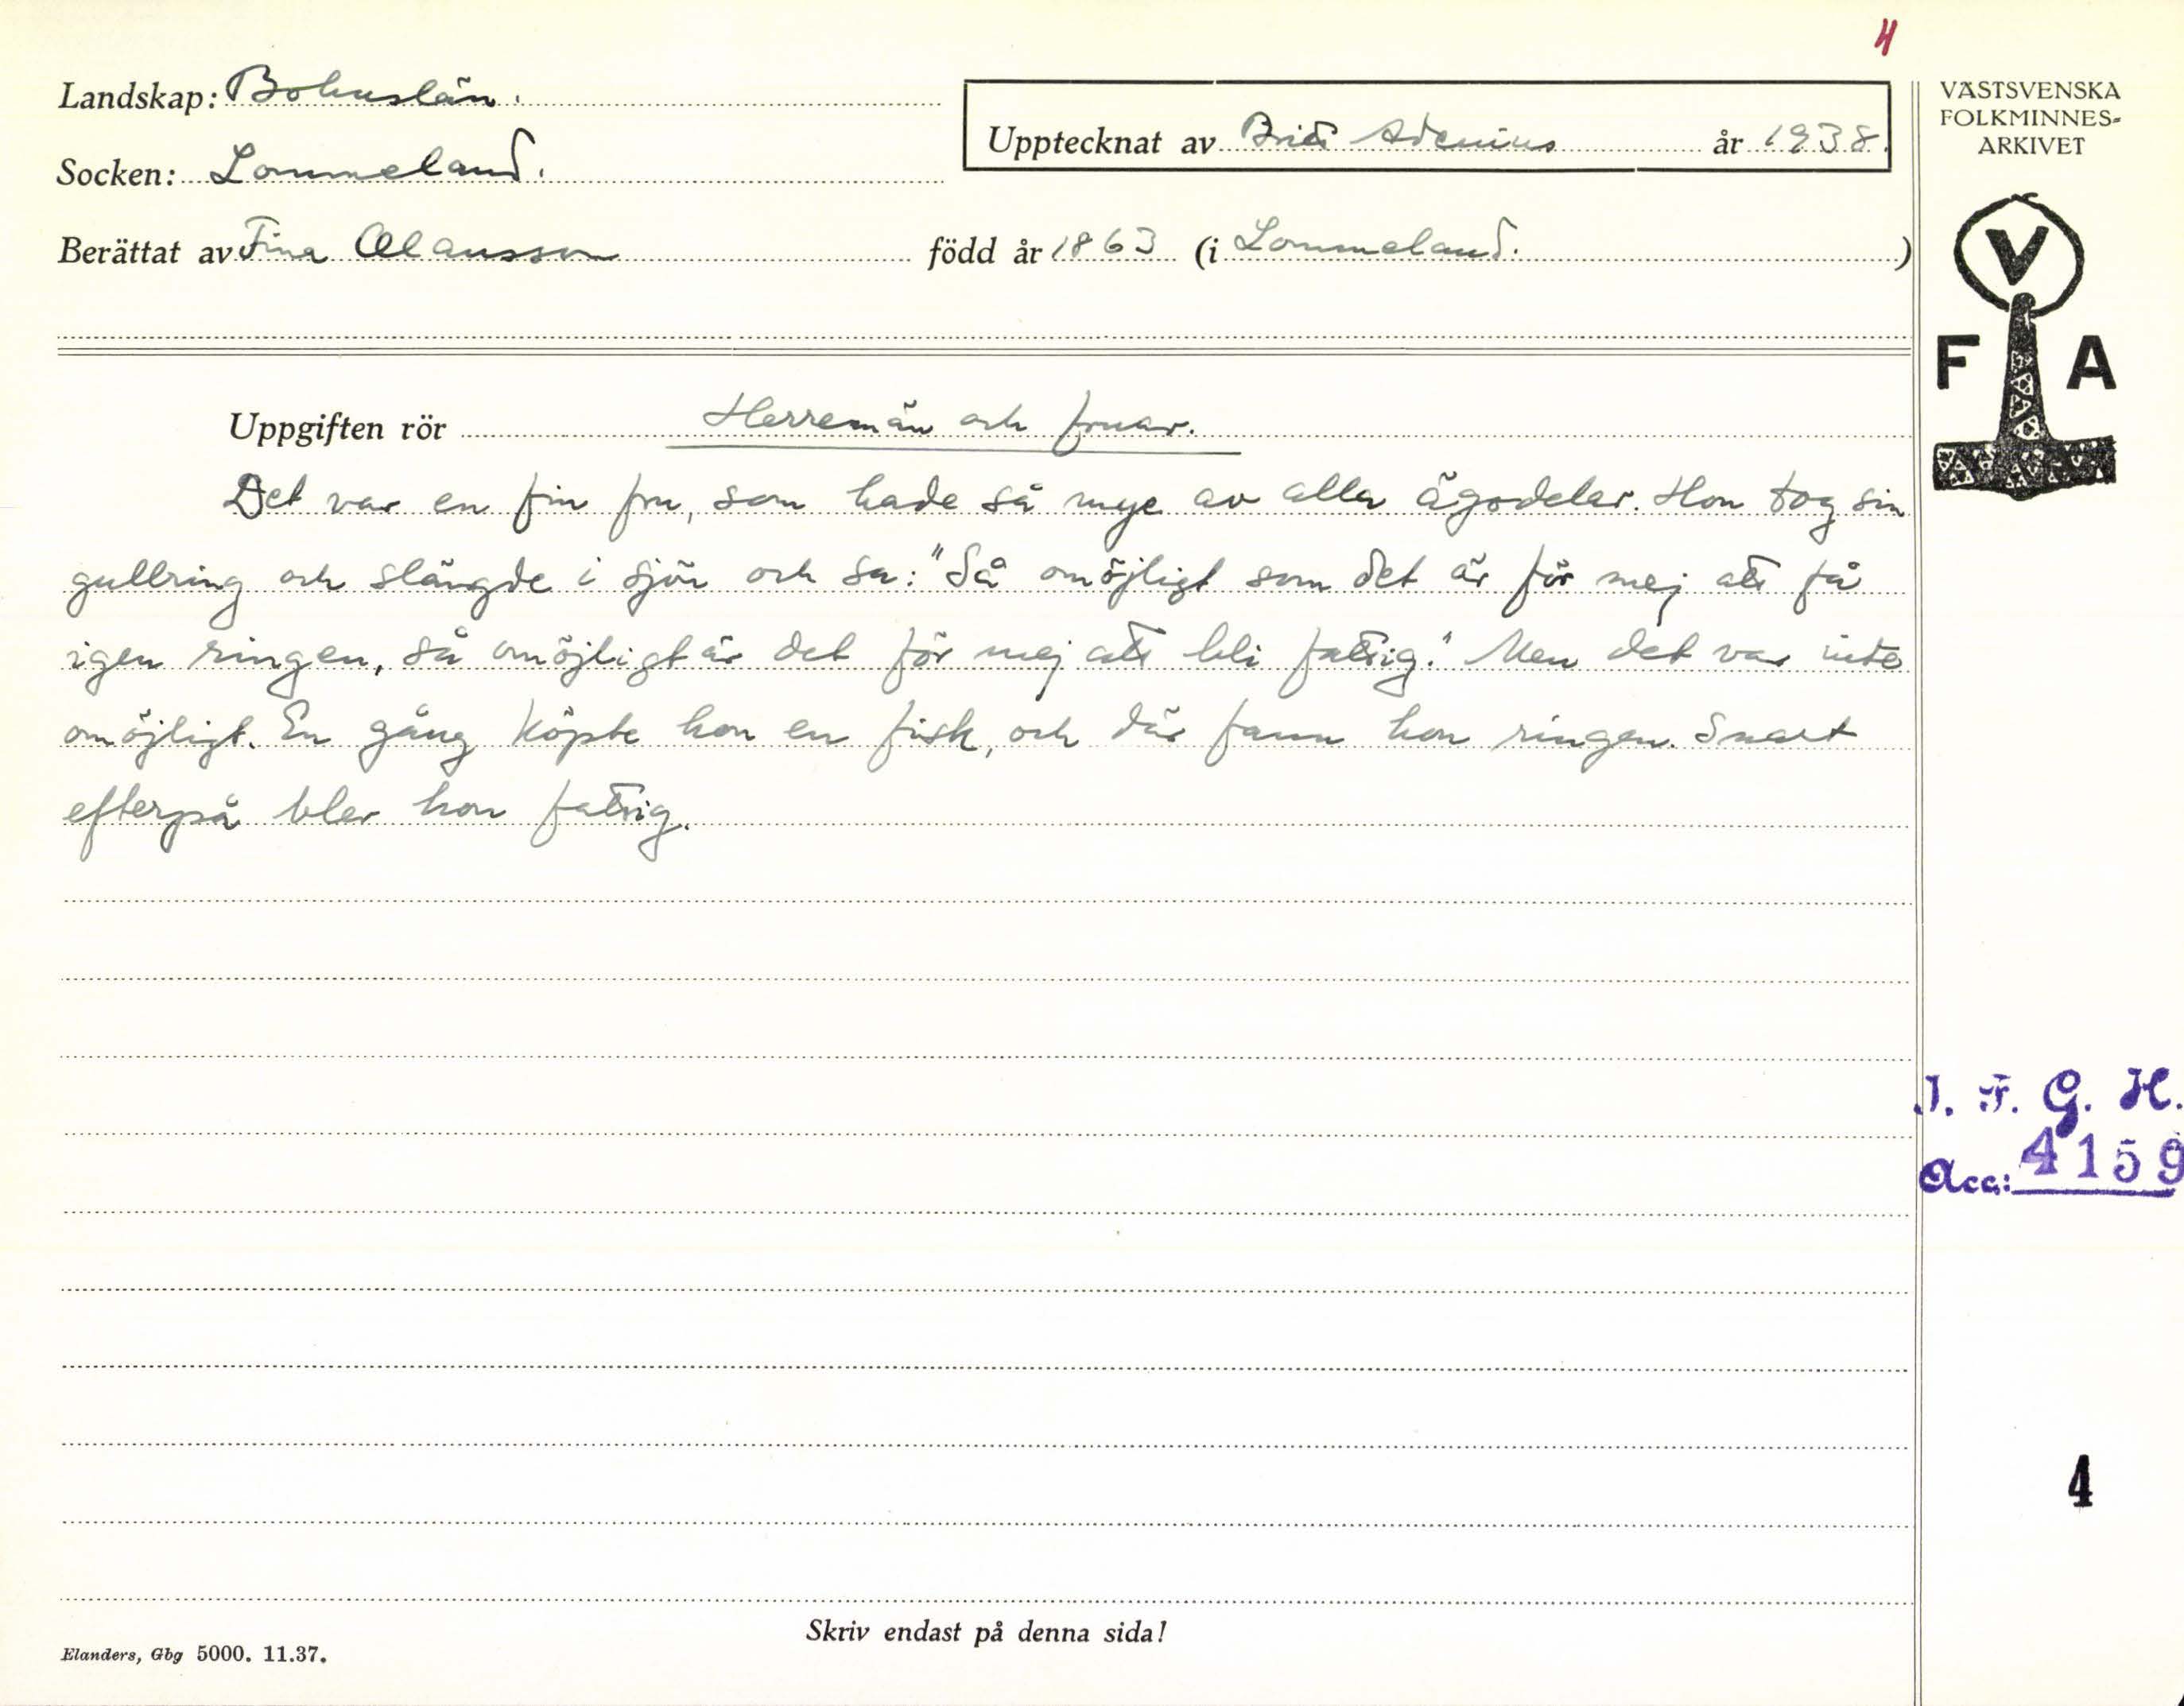 4
Landskap: Bohuslän.
Socken: Lommeland.
Upptecknat av Britt Adenius år 1938.
Berättat av Fina Olausson född år 1863 (i Lommeland. )
VÄSTSVENSKA
FOLKMINNES-
ARKIVET
V
F A
Uppgiften rör Herremän och fruar.
Det var en fin fru, som hade så mye av alla ägodelar. Hon tog sin
gullring och slängde i sjön och sa: "Så omöjligt som det är för mej att få
igen ringen, så omöjligt är det för mej att bli fattig." Men det var inte
omöjligt. En gång köpte hon en fisk, och där fann hon ringen. Snart
efterpå blev hon fattig.
I. F. G. H.
Acc: 4159
4
Skriv endast på denna sida!
Elanders, Gbg 5000. 11.37.